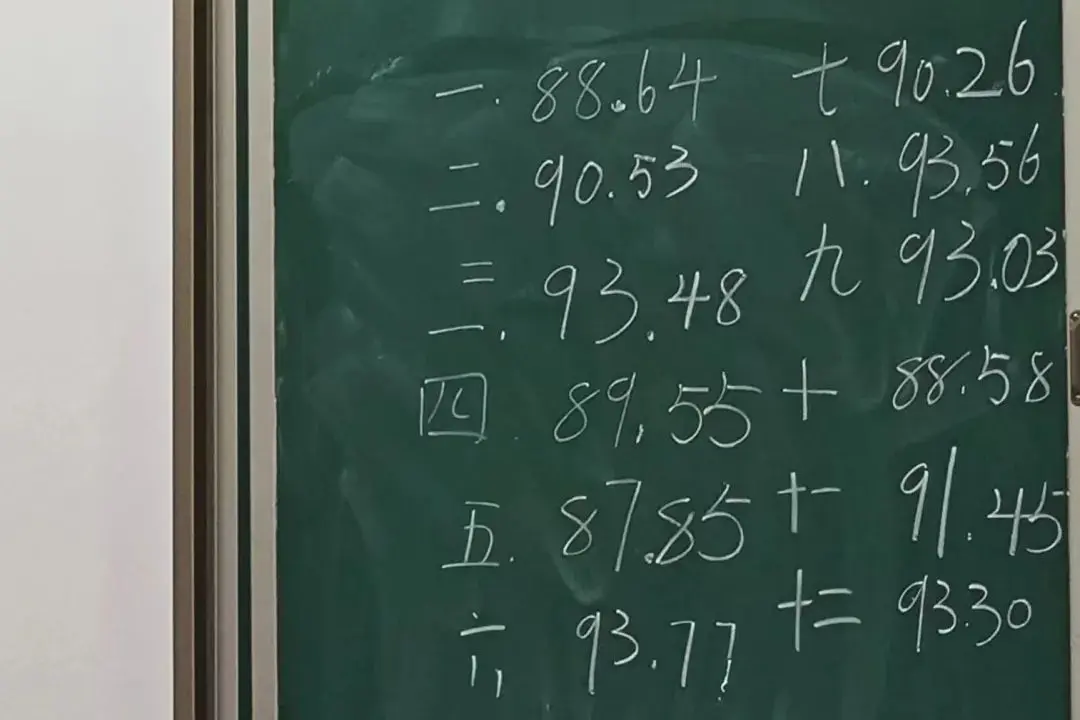 一. 88.64
二. 90.53
三. 93.48
四. 89.55
五. 87.85
六 93.77
七 90.26
八. 93.56
九 93.03
十 88.58
十一 91.45
十二 93.30